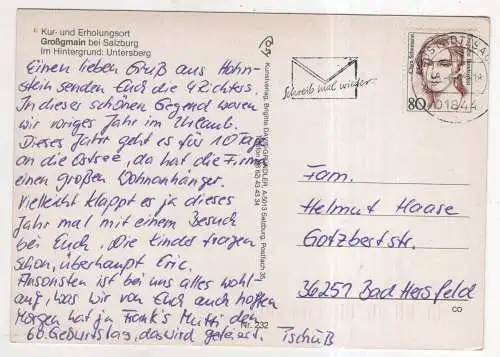 Kur- und Erholungsort
Großgmain bei Salzburg
Im Hintergrund: Untersberg
Einen lieben Gruß aus Hohn-
stein senden Euch die 4
In dieser schönen Gegend waren
wir voriges Jahr im Urlaub.
Dieses Jahr geht es für 10 Tage
an die Ostsee, da hat die Firma
einen großen Wohnanhänger.
Vielleicht klappt es ja dieses
Jahr mal mit einem Besuch
bei Euch. Die Kinder fragen
schon, überhaupt Eric.
Ansonsten ist bei uns alles wohl-
auf, was wir von Euch auch hoffen
Morgen hat ja Frank's Mutti den
60. Geburtstag, das wird gefeiert. Tschüß
Nr. 232
Kunstverlag, Brigitte DAXER-GRUNDLER, A-5013 Salzburg, Postfach 35
Schreib mal wieder.
Clara Schumann
80
01844
Fam.
Helmut Haase
Gotzbertstr.
36251 Bad Hersfeld
CO